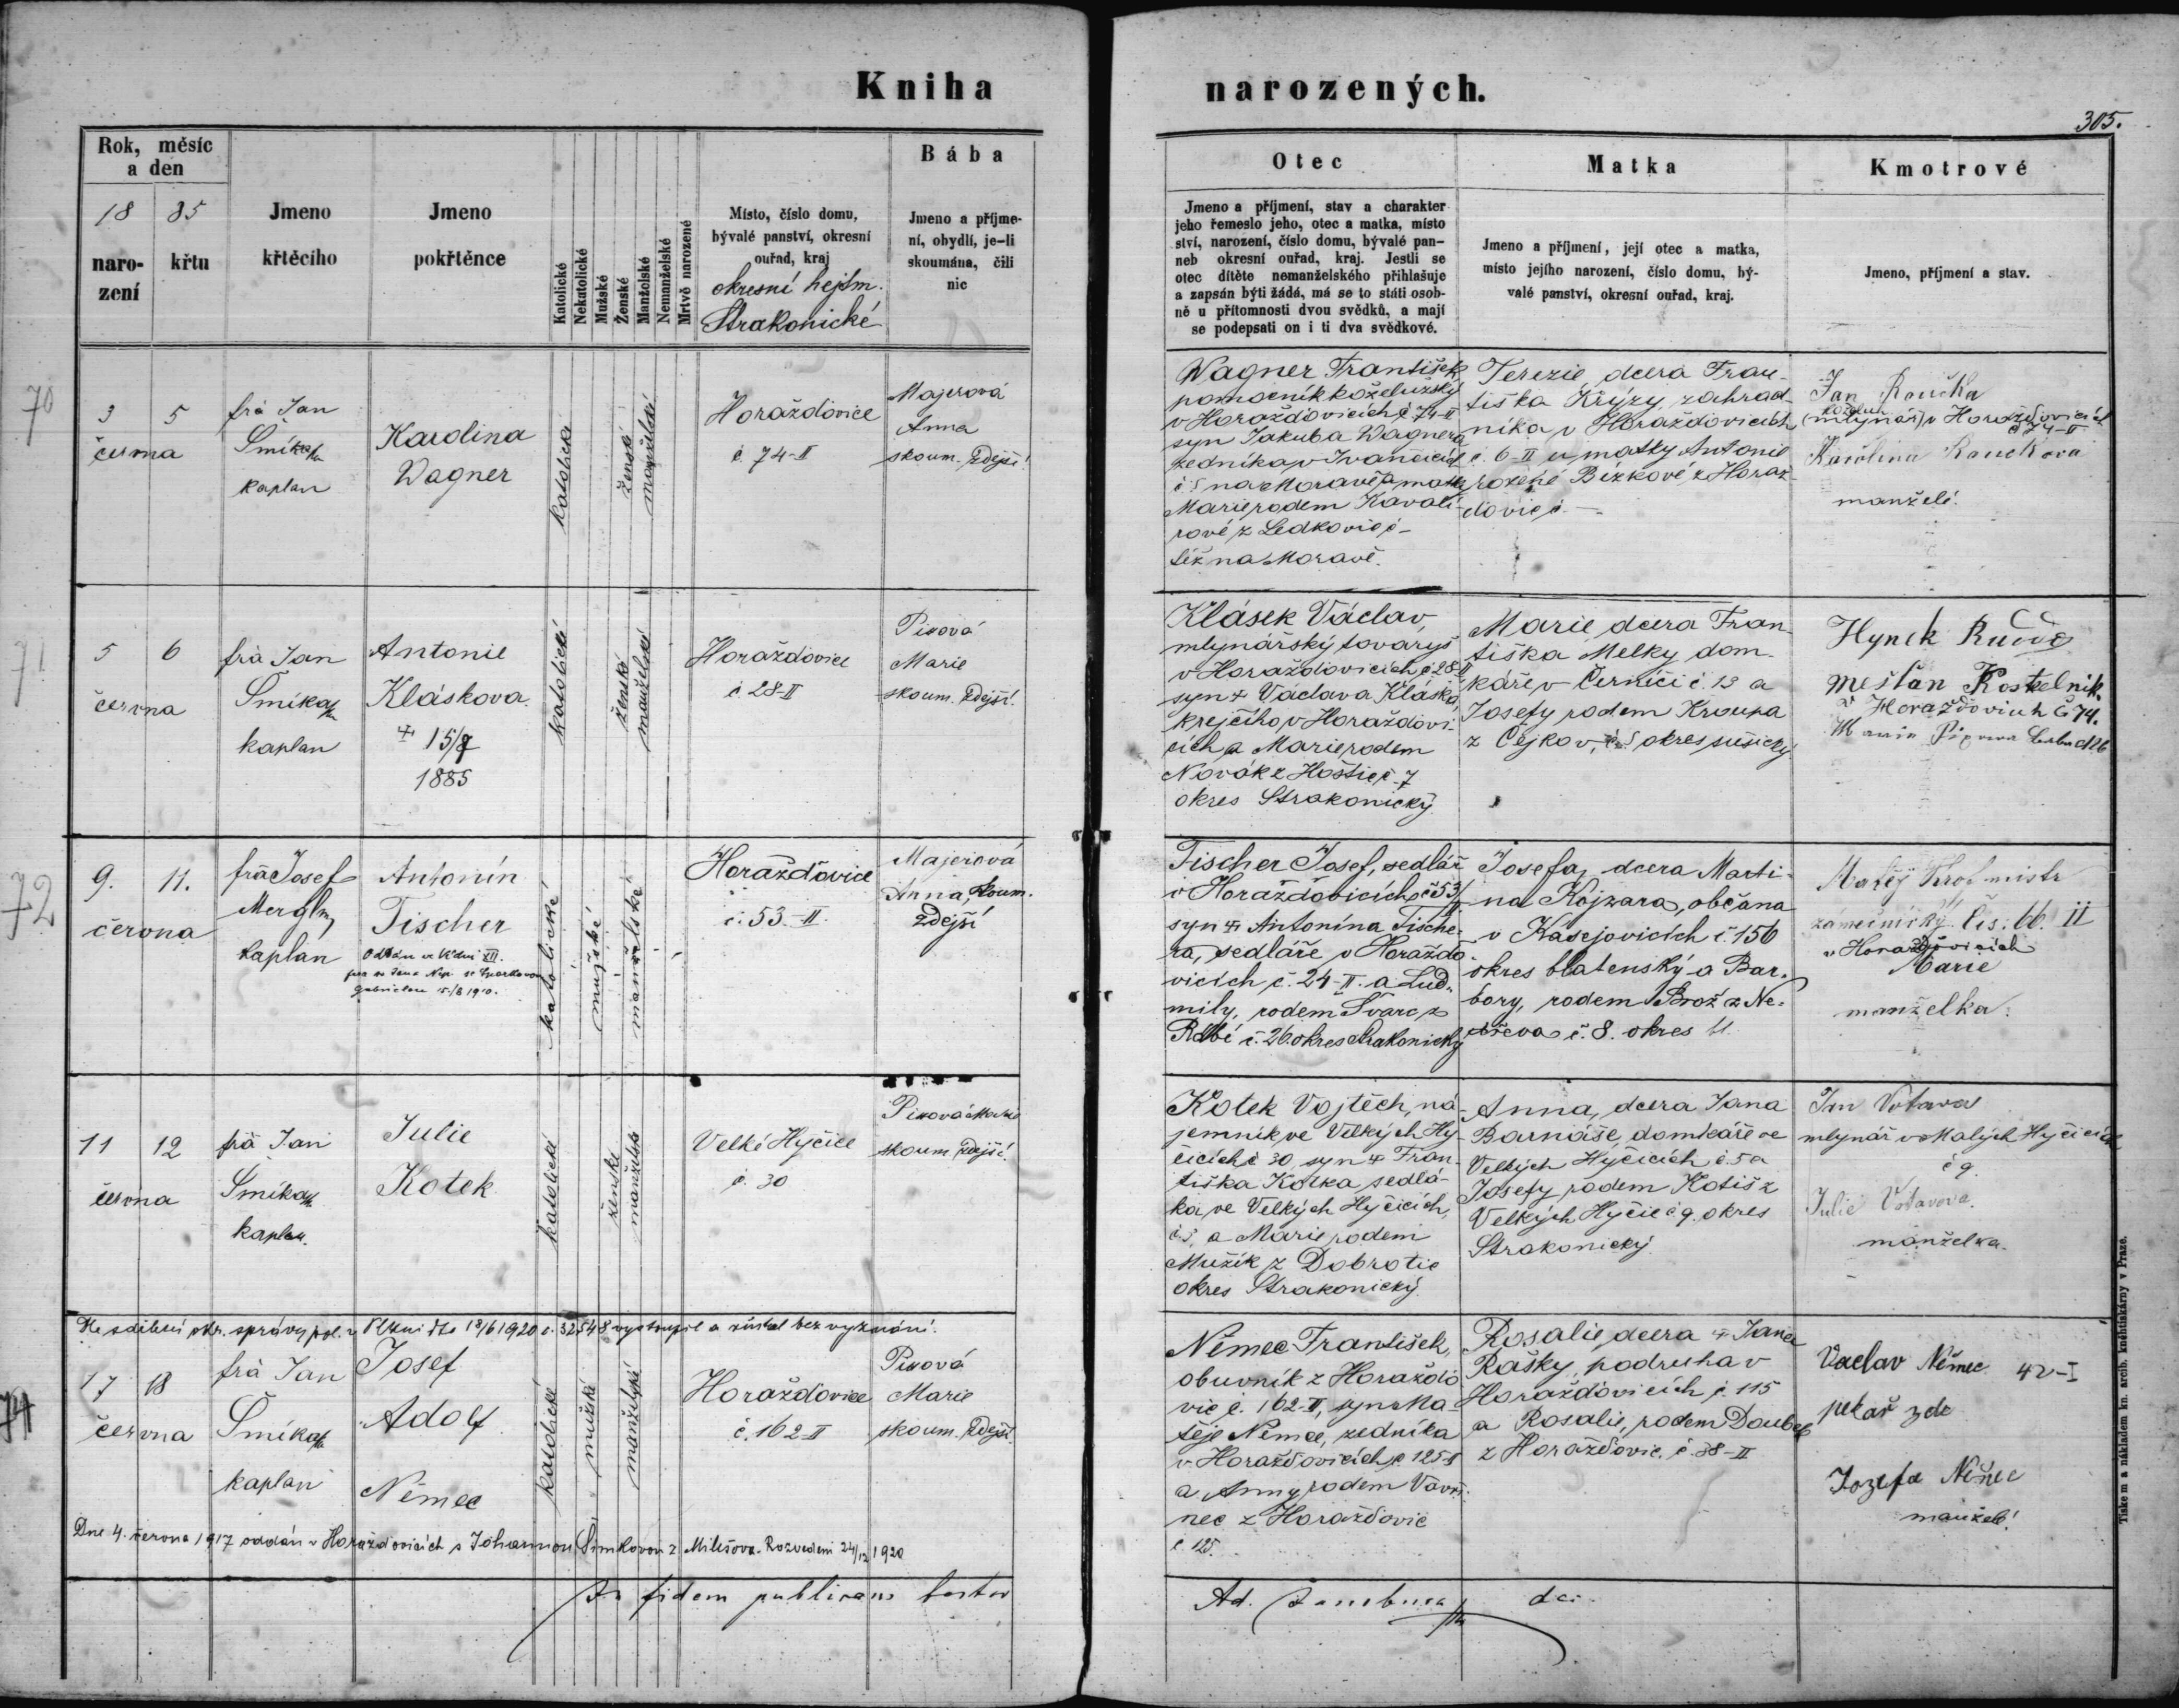 Kniha narozených.
305.
Rok, měsíc
a den
18 85
naro-
zení
křtu
Jmeno
křtěcího
Jmeno
pokřtěnce
Katolické
Nekatolické
Mužské
Ženské
Manželské
Nemanželské
Mrtvě narozené
Místo, číslo domu,
bývalé panství, okresní
ouřad, kraj
okresní hejtm.
Strakonické
Bába
Jmeno a příjme-
ní, obydlí, je-li
skoumána, čili
nic
Otec
Jmeno a příjmení, stav a charakter
jeho řemeslo jeho, otec a matka, místo
ství, narození, číslo domu, bývalé pan-
neb okresní ouřad, kraj. Jestli se
otec dítěte nemanželského přihlašuje
a zapsán býti žádá, má se to státi osob-
ně u přítomnosti dvou svědků, a mají
se podepsati on i ti dva svědkové.
Matka
Jmeno a příjmení, její otec a matka,
místo jejího narození, číslo domu, bý-
valé panství, okresní ouřad, kraj.
Kmotrové
Jmeno, příjmení a stav.
70
3 5
června
frà Jan
Šmíkal
kaplan
Karolina
Wagner
katolické
ženské
manželské
Horažďovice
č. 74-II
Majerová
Anna
skoum. zdejší
Wagner František
pomocník koželužský
v Horažďovicích č 74-II
syn Jakuba Wagnera
zedníka v Ivančicích
č 5 na Moravě a matky
Marie rodem Kavalí-
rové z Ledkovic č -
též na Moravě.
Terezie, dcera Fran-
tiška Křížy, zahrad-
níka v Horažďovicích
č. 6-II u matky Antonie
rozené Bízkové z Horaž-
ďovic č. -
Jan Roučka
koželuh
(mlynář) v Horažďovicích
č 74-II
Karolina Roučkova
manželé.
71
5 6
června
frà Jan
Šmíkal
kaplan
Antonie
Kláskova
+ 15/7
1885
katolické
ženské
manželské
Horažďovice
č 28-II
Pixová
Marie
skoum. zdejší.
Klásek Václav,
mlynářský tovaryš
v Horažďovicích č 28-II
syn + Václava Kláska,
krejčího v Horažďovi-
cích a Marie rodem
Novák z Hoštic č 7
okres Strakonický
Marie, dcera Fran-
tiška Melky dom-
káře v Černíči č. 13 a
Josefy rodem Kroupa
z Čejkov, č 5 okres sušický.
Hynek
měšťan Kostelník
v Horažďovich č 74.
72
9. 11.
června
frà Josef
Mergl
kaplán
Antonín
Fischer
katolické
mužské
manželské
Horažďovice
č. 53-II.
Majerová
Anna, skoum.
zdejší
Fischer Josef, sedlář
v Horažďovicích č 53/II.
syn + Antonína Fische-
ra, sedláře v Horaždo-
vicích č. 24-II. a Lud-
mily, rodem Švarc z
Rabí č. 26. okres Strakonický
Josefa, dcera Marti-
na Kojzara, občana
v Kasejovicích č. 156
okres blatenský a Bar-
bory, rodem Brož z Ne-
zdřeva č. 8. okres bl.
Matěj mistr
zámečnický čís. 66. II
v Horažďovicích
Marie
manželka.
11 12
června
frà Jan
Šmíkal
kaplan.
Julie
Kotek
katolické
ženské
manželské
Velké Hyčice
č. 30
Pixová Marie
skoum. zdejší.
Kotek Vojtěch, ná-
jemník ve Velkých Hy-
čicích č 30 syn + Fran-
tiška Kotka sedlá-
ka ve Velkých Hyčicích,
č 5, a Marie rodem
Mužík z Dobrotic
okres Strakonický.
Anna, dcera Jana
Barnáše, domkáře ve
Velkých Hyčicích č. 5 a
Josefy rodem Kotiš z
Velkých Hyčic č 9. okres
Strakonický.
Jan Votava
mlynář v Malých Hyčicích
č 9
Julie Votavova.
manželka.
Ke sdělení okr. správy pol. v Plzni dto 18/6 1920 č. 32548 vystoupil a zůstal bez vyznání.
74
17 18
června
frà Jan
Šmíkal
kaplan
Josef
Adolf
Němec
katolické
mužské
manželské
Horažďovice
č. 162-II
Pixová
Marie
skoum. zdejší.
Němec František,
obuvník z Horažďo-
vic č. 162-II, syn Ma-
těje Němce, zedníka
v Horažďovicích č 125-II
a Anny rodem Vavři-
nec z Horažďovic
č 125.
Rosalie, dcera + Jana
Rašky, podruha v
Horažďovicích č. 115
a Rosalie, rodem Doubek
z Horažďovic. č. 38-II
Vaclav Němec 42-I
pekař zde
Jozefa Němec
manželé!
Dne 4. června 1917 oddán v Horažďovicích s Johannou Šimkovou z Milešova. Rozvedeni 24/12 1920
In fidem publicam testor
Tiskem a nákladem kn. arcib. knihtiskárny v Praze.